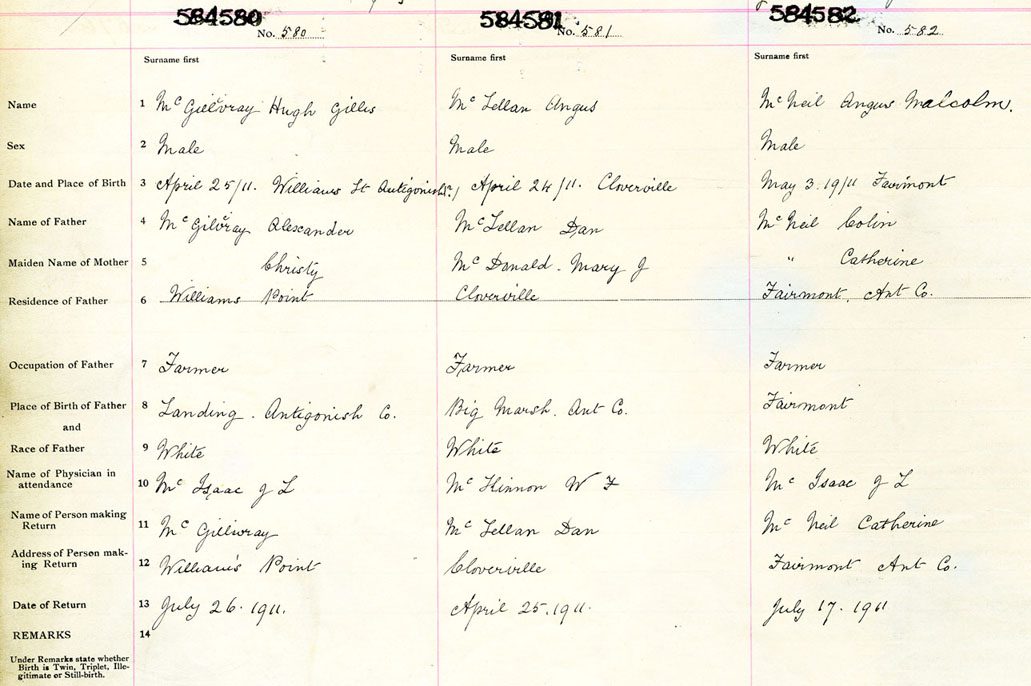 584580 584581 584582
No. 580 No. 581 No. 582
Surname first Surname first Surname first
Name 1 McGillvray Hugh Gillis McLellan Angus McNeil Angus Malcolm.
Sex 2 Male Male Male
Date and Place of Birth 3 April 25/11. Williams St Antigonish, April 24/11. Cloverville May 3. 19/11 Fairmont
Name of Father 4 McGilvray Alexander McLellan Dan McNeil Colin
Maiden Name of Mother 5 Christy McDonald. Mary J " Catherine
Residence of Father 6 Williams Point Cloverville Fairmont. Ant Co.
Occupation of Father 7 Farmer Farmer Farmer
Place of Birth of Father 8 Landing. Antigonish Co. Big Marsh. Ant Co. Fairmont
and
Race of Father 9 White White White
Name of Physician in
attendance 10 McIsaac J L McKinnon W F McIsaac J L
Name of Person making
Return 11 McGillvray McLellan Dan McNeil Catherine
Address of Person mak-
ing Return 12 William's Point Cloverville Fairmont Ant Co.
Date of Return 13 July 26. 1911. April 25. 1911. July 17. 1911
REMARKS 14
Under Remarks state whether
Birth is Twin, Triplet, Ille-
gitimate or Still-birth.